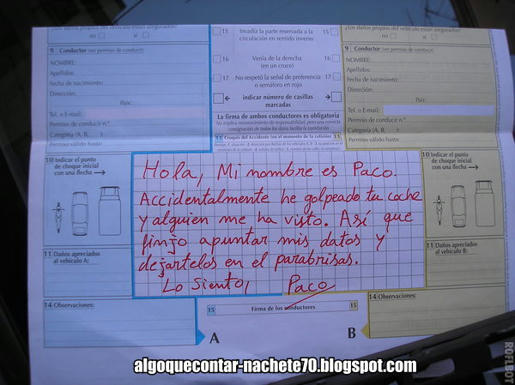 ¿Los daños propios del vehículo están asegurados?
no si
15 Invadía la parte reservada a la circulación en sentido inverso 15
16 Venía de la derecha (en un cruce) 16
17 No respetó la señal de preferencia o semáforo en rojo 17
indicar número de casillas marcadas
La firma de ambos conductores es obligatoria
9 Conductor (ver permiso de conducir)
NOMBRE:
Apellidos:
Fecha de nacimiento:
Dirección:
País:
Tel. o E-mail:
Permiso de conducir n.º
Categoría (A, B, )
Permiso válido hasta:
9 Conductor (ver permiso de conducir)
NOMBRE:
Apellidos:
Fecha de nacimiento:
Dirección:
País:
Tel. o E-mail:
Permiso de conducir n.º
Categoría (A, B, )
Permiso válido hasta:
10 Indicar el punto de choque inicial con una flecha
Hola, Mi nombre es Paco.
Accidentalmente he golpeado tu coche
y alguien me ha visto. Así que
finjo apuntar mis datos y
dejartelos en el parabrisas.
Lo Siento, Paco
10 Indicar el punto de choque inicial con una flecha
11 Daños apreciados al vehículo A:
11 Daños apreciados al vehículo B:
14 Observaciones:
15 Firma de los conductores 15
A B
14 Observaciones:
algoquecontar-nachete70.blogspot.com
ROFLBOT